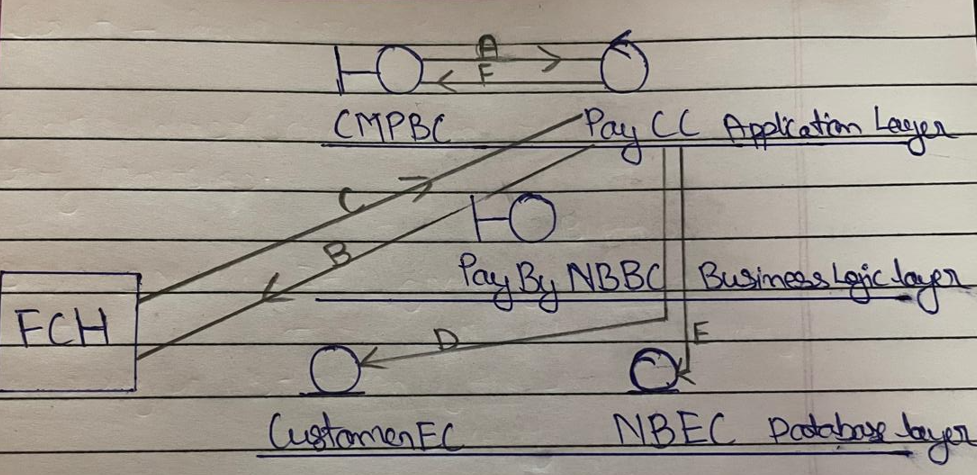 A
F
CMPBC Pay CC Application Layer
C
B
Pay By NBBC Business Logic layer
FCH
D
E
CustomerEC NBEC Database layer